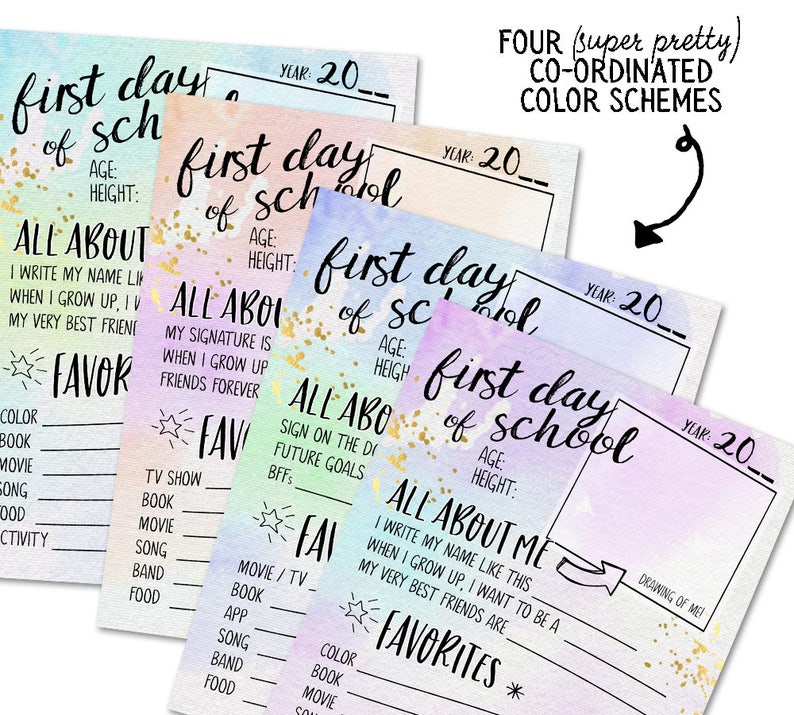 FOUR (super pretty)
CO-ORDINATED
COLOR SCHEMES
YEAR: 20__
first day
of school
AGE:
HEIGHT:
ALL ABOUT
I WRITE MY NAME LIK
WHEN I GROW UP, I W
MY VERY BEST FRIEND
FAVOR
COLOR
BOOK
MOVIE
SONG
FOOD
CTIVITY
YEAR: 20__
first day
of school
AGE:
HEIGHT:
ALL ABOU
MY SIGNATURE IS
WHEN I GROW UP
FRIENDS FOREVER
FAV
TV SHOW
BOOK
MOVIE
SONG
BAND
FOOD
YEAR: 20__
first day
of school
AGE:
HEIGH
ALL ABO
SIGN ON THE DO
FUTURE GOALS
BFFs
FAV
MOVIE / TV
BOOK
APP
SONG
BAND
FOOD
YEAR: 20__
first day
of school
AGE:
HEIGHT:
ALL ABOUT ME
I WRITE MY NAME LIKE THIS
WHEN I GROW UP, I WANT TO BE A
MY VERY BEST FRIENDS ARE
DRAWING OF ME!
FAVORITES
COLOR
BOOK
MOVIE
SONG